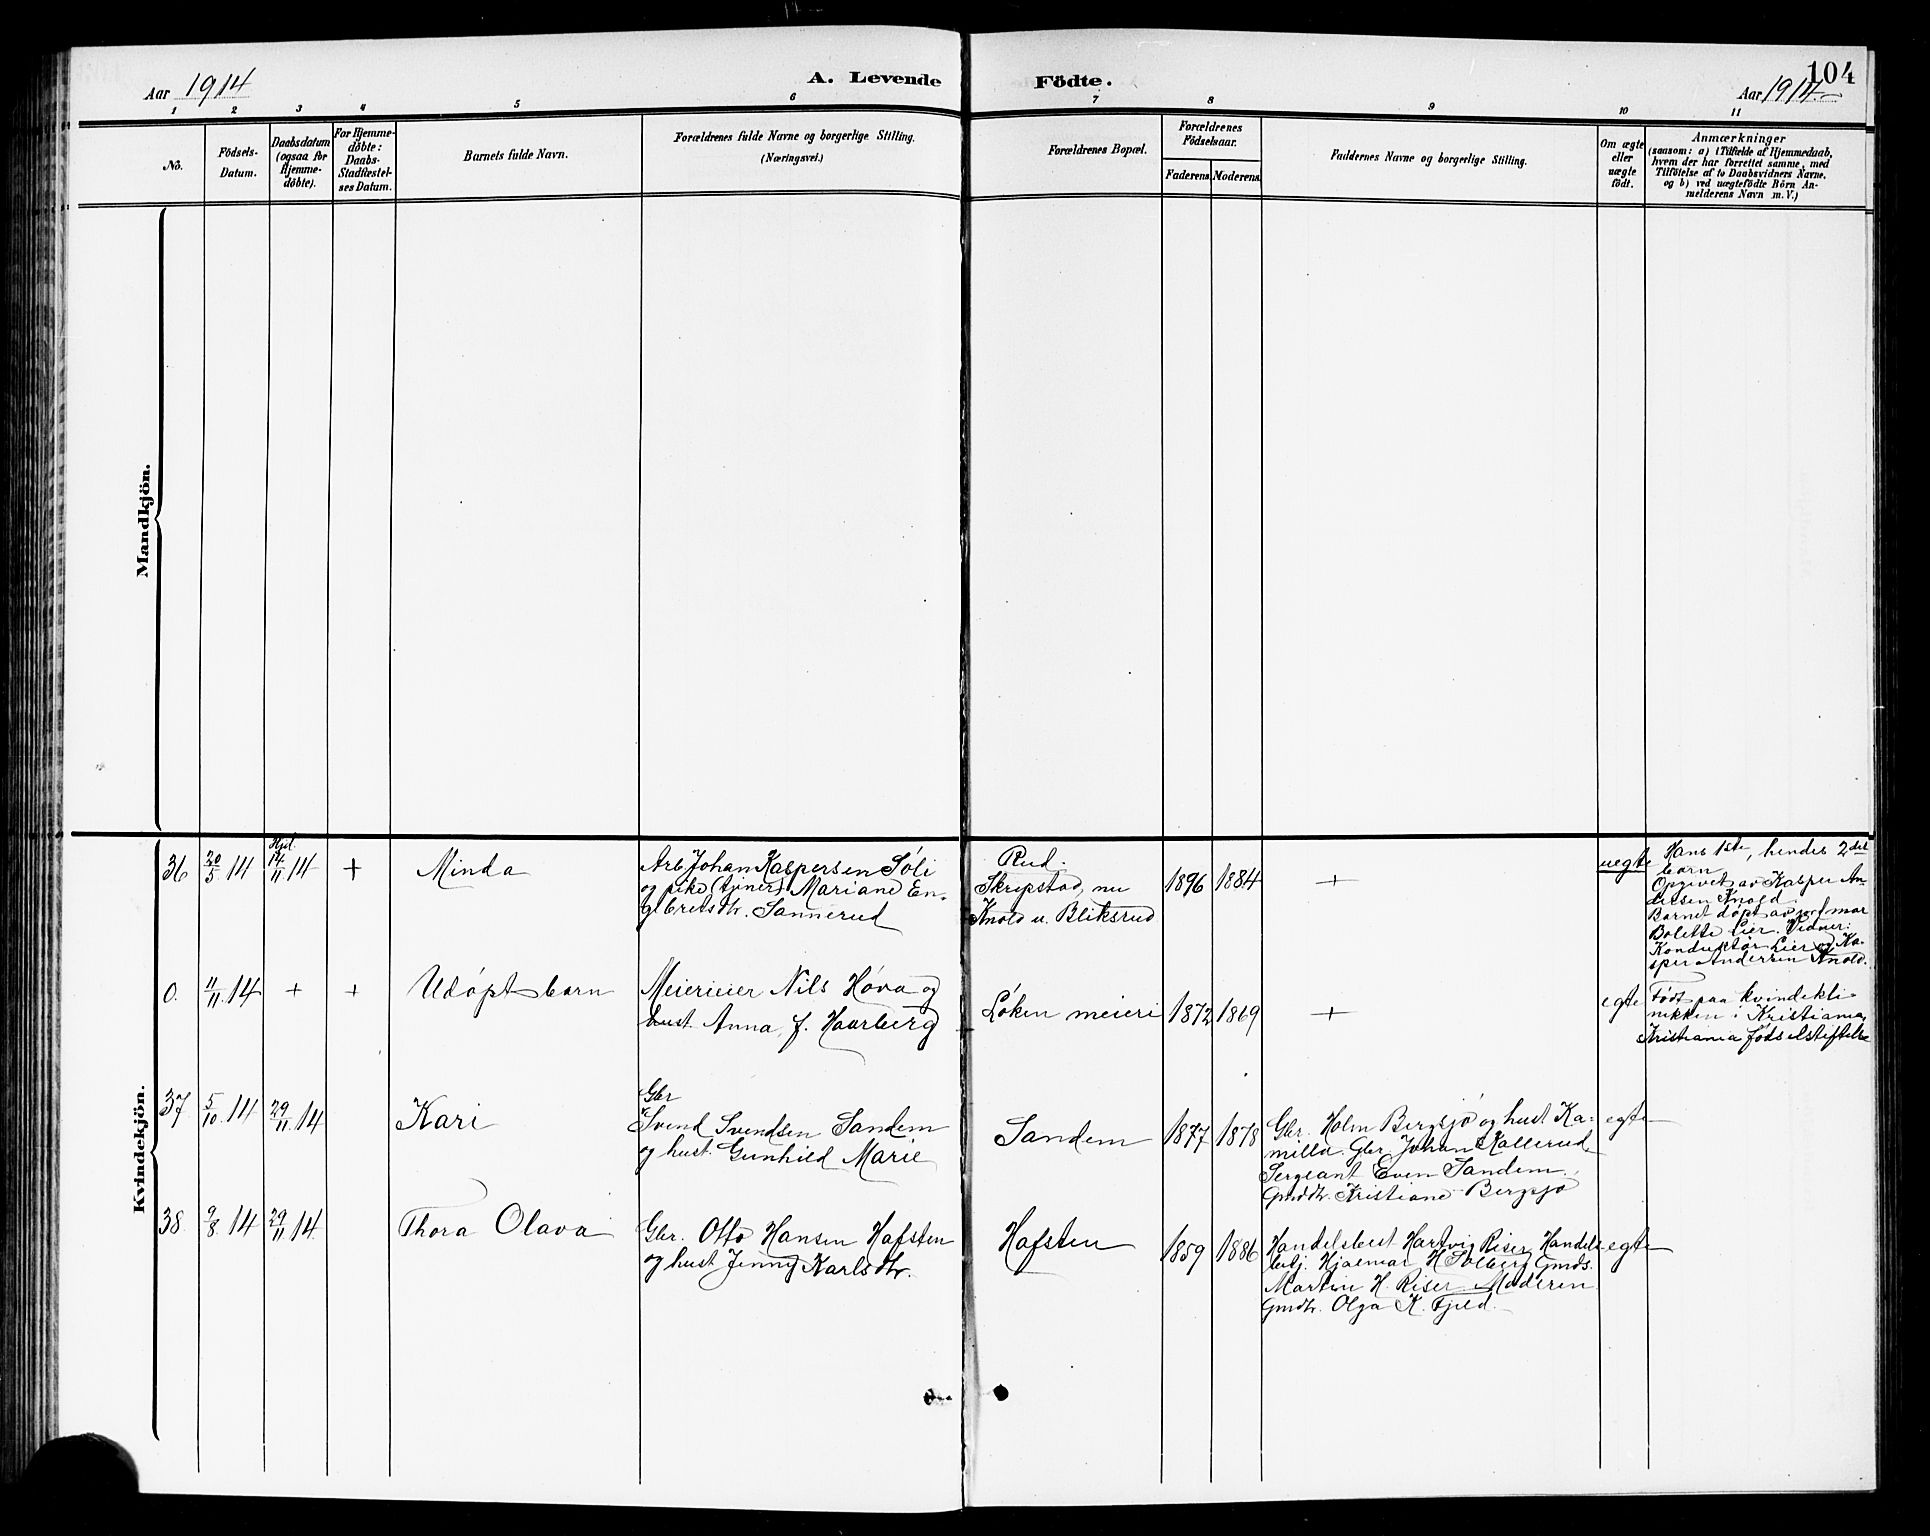 104
Aar 1914
A. Levende
Födte.
Aar 1914
1 2 3 4 5 6 7 8 9 10 11
No.
Födsels-
Datum.
Daabsdatum
(ogsaa for
Hjemme-
döbte).
For Hjemme-
döbte:
Daabs-
Stadfæstel-
ses Datum.
Barnets fulde Navn.
Forældrenes fulde Navne og borgerlige Stilling.
(Næringsvei.)
Forældrenes Bopæl.
Forældrenes
Födselsaar.
Faderens Moderens
Faddernes Navne og borgerlige Stilling.
Om ægte
eller
uægte
födt.
Anmærkninger
(saasom: a) i Tilfælde af Hjemmedaab,
hvem der har forrettet samme, med
Tilföielse af to Daabsvidners Navne,
og b) ved uægtefödte Börn An-
melderens Navn m. V.)
Mandkjön.
Kvindekjön.
36
20/5 14
Hjd.
14/11 14
+
Minda
Arb Johan Kaspersen Sóli
og pike (tjener) Mariane En-
gebretsdtr. Sannerud
Rud.
Skripstad, nu
Knold u. Bliksrud
1896
1884
+
uegte
Hans 1ste, hendes 2det
barn
Opgivet av Kasper An-
dersen Knold.
Barnet döpt av jordmor
Bolette Lier. Vidner:
Konduktör Lier og Ka-
sper Andersen Knold.
0.
11/11 14
+
+
Udópt barn
Meierieier Nils Hóva og
hust. Anna, f. Haarberg
Lóken meieri
1872
1869
+
egte
Födt paa kvindekli-
nikken i Kristiania,
Kristiania födselstiftelse
37
5/10 14
29/11 14
Kari
Gbr
Svend Svendsen Sandem
og hust. Gunhild Marie
Sandem
1877
1878
Gbr. Holm Bergsjö og hust Ka-
milla. Gbr Johan Kallerud
Sergeant Even Sandem.
Gmddtr. Kristiane Bergsjö
egte
38
9/8 14
29/11 14
Thora Olava
Gbr. Otto Hansen Hafsten
og hust Jenny Karlsdtr.
Hafsten
1859
1886
Handelsbest Hartvig Riser Handels-
betj. Hjalmar H Solberg Gmds.
Martin H. Riser Moderen
Gmdtr. Olga K. Fjeld
egte